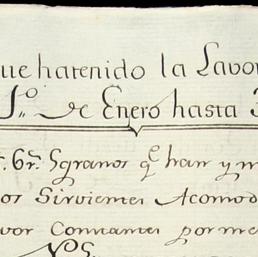 ue hatenido la Lavo
1.º de Enero hasta 3
6r. Sgranos q.e han y m
os Sirvientes Acomod
vor Constantes por me
N.os